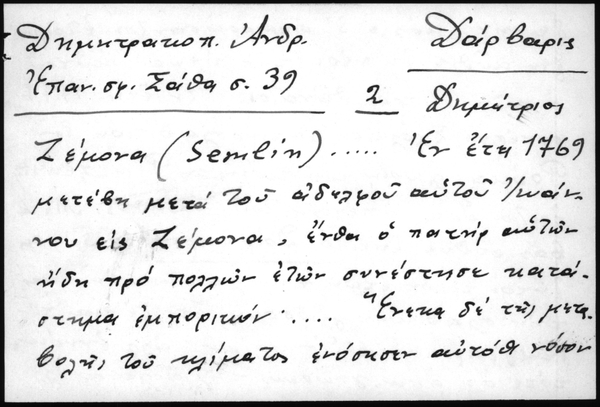 Δημητρακοπ. Ἀνδρ.
Δάρβαρις
Ἐπαν. σφ. Σάθα σ. 39
2
Δημήτριος
Ζέμονα (Semlin) ..... Ἐν ἔτει 1769
μετέβη μετά τοῦ ἀδελφοῦ αὐτοῦ Ἰωάν-
νου εἰς Ζέμονα, ἔνθα ὁ πατήρ αὐτῶν
ἤδη πρό πολλῶν ἐτῶν συνέστησε κατά-
στημα ἐμπορικόν .... Ἕνεκα δέ τῆς μετα-
βολῆς τοῦ κλίματος ἐνόσησεν αὐτόθι νόσον